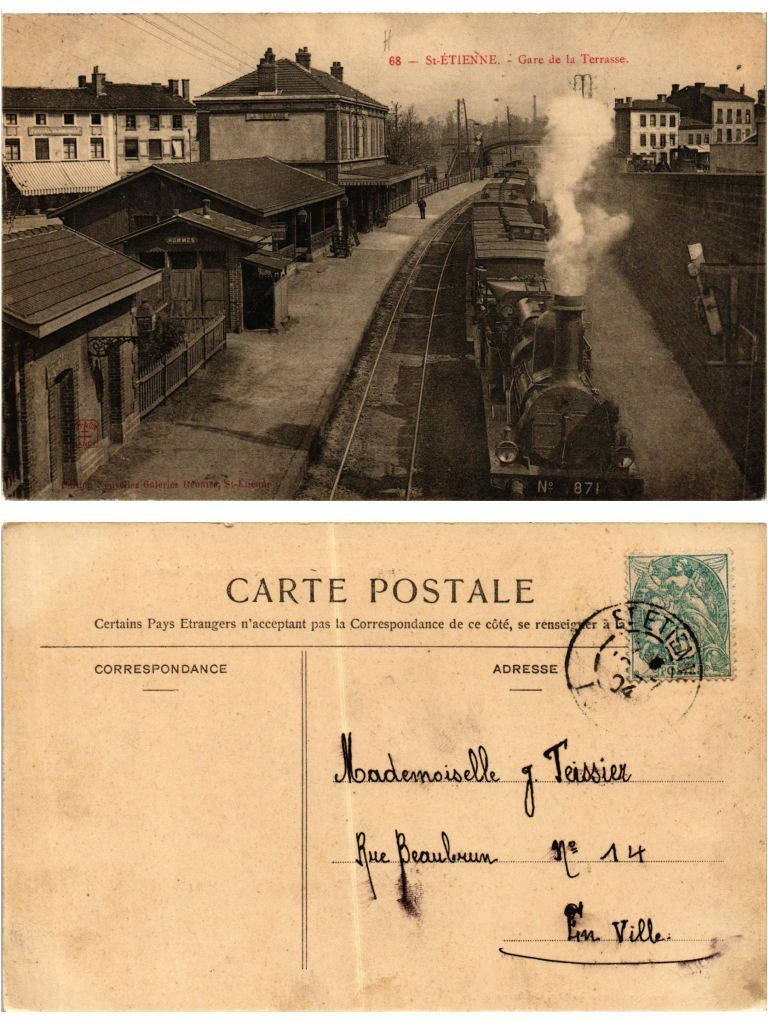 68 — St-ÉTIENNE. - Gare de la Terrasse.
HOMMES
Edition Nouvelles Galeries Réunies, St-Etienne
N° 871
CARTE POSTALE
Certains Pays Etrangers n'acceptant pas la Correspondance de ce côté, se renseigner à la
CORRESPONDANCE
ADRESSE
ST ETIENNE
04
Mademoiselle J. Teissier
Rue Beaubrun N° 14
En Ville.